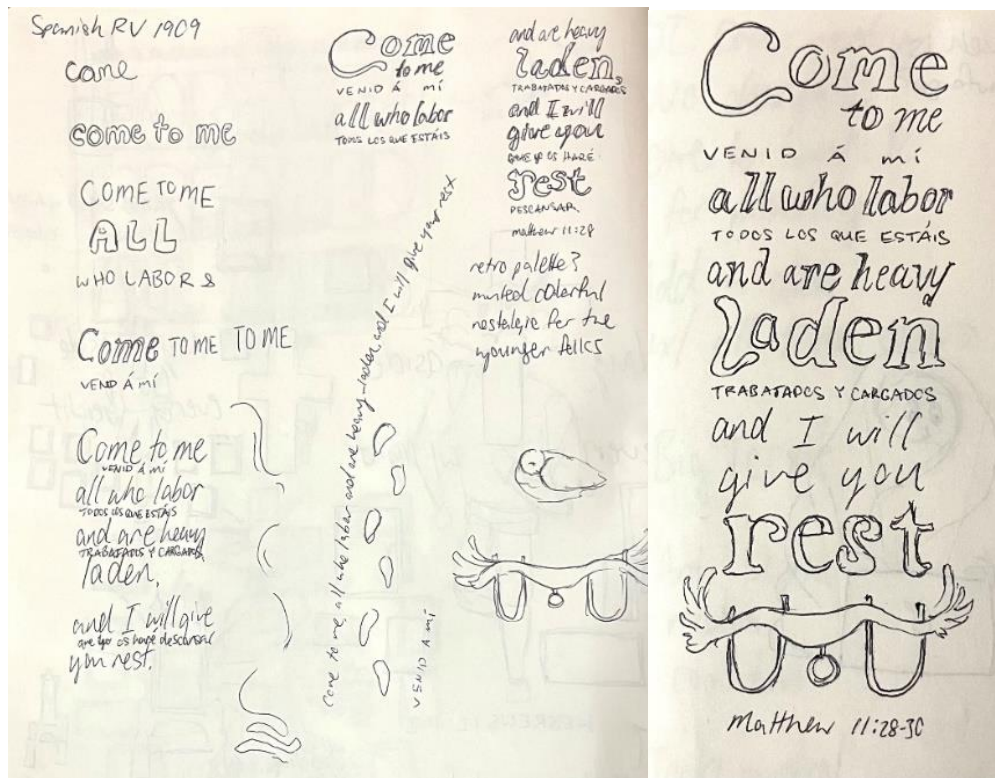 Spanish RV 1909
come
come to me
COME TO ME
ALL
WHO LABOR &
Come TO ME TO ME
VENID Á MÍ
Come to me
VENID Á MÍ
all who labor
TODOS LOS QUE ESTÁIS
and are heavy
TRABAJADOS Y CARGADOS
laden,
and I will give
que yo os haré descansar
you rest.
Come to me all who labor and are heavy-laden and I will give you rest
VENID A MÍ
Come
to me
VENID Á MÍ
all who labor
TODOS LOS QUE ESTÁIS
and are heavy
laden,
TRABAJADOS Y CARGADOS
and I will
give you
QUE YO OS HARÉ
rest
DESCANSAR
matthew 11:28
retro palette?
muted colorful
nostalgic for the
younger folks
Come
to me
VENID Á MÍ
all who labor
TODOS LOS QUE ESTÁIS
and are heavy
laden
TRABAJADOS Y CARGADOS
and I will
give you
rest
Matthew 11:28-30